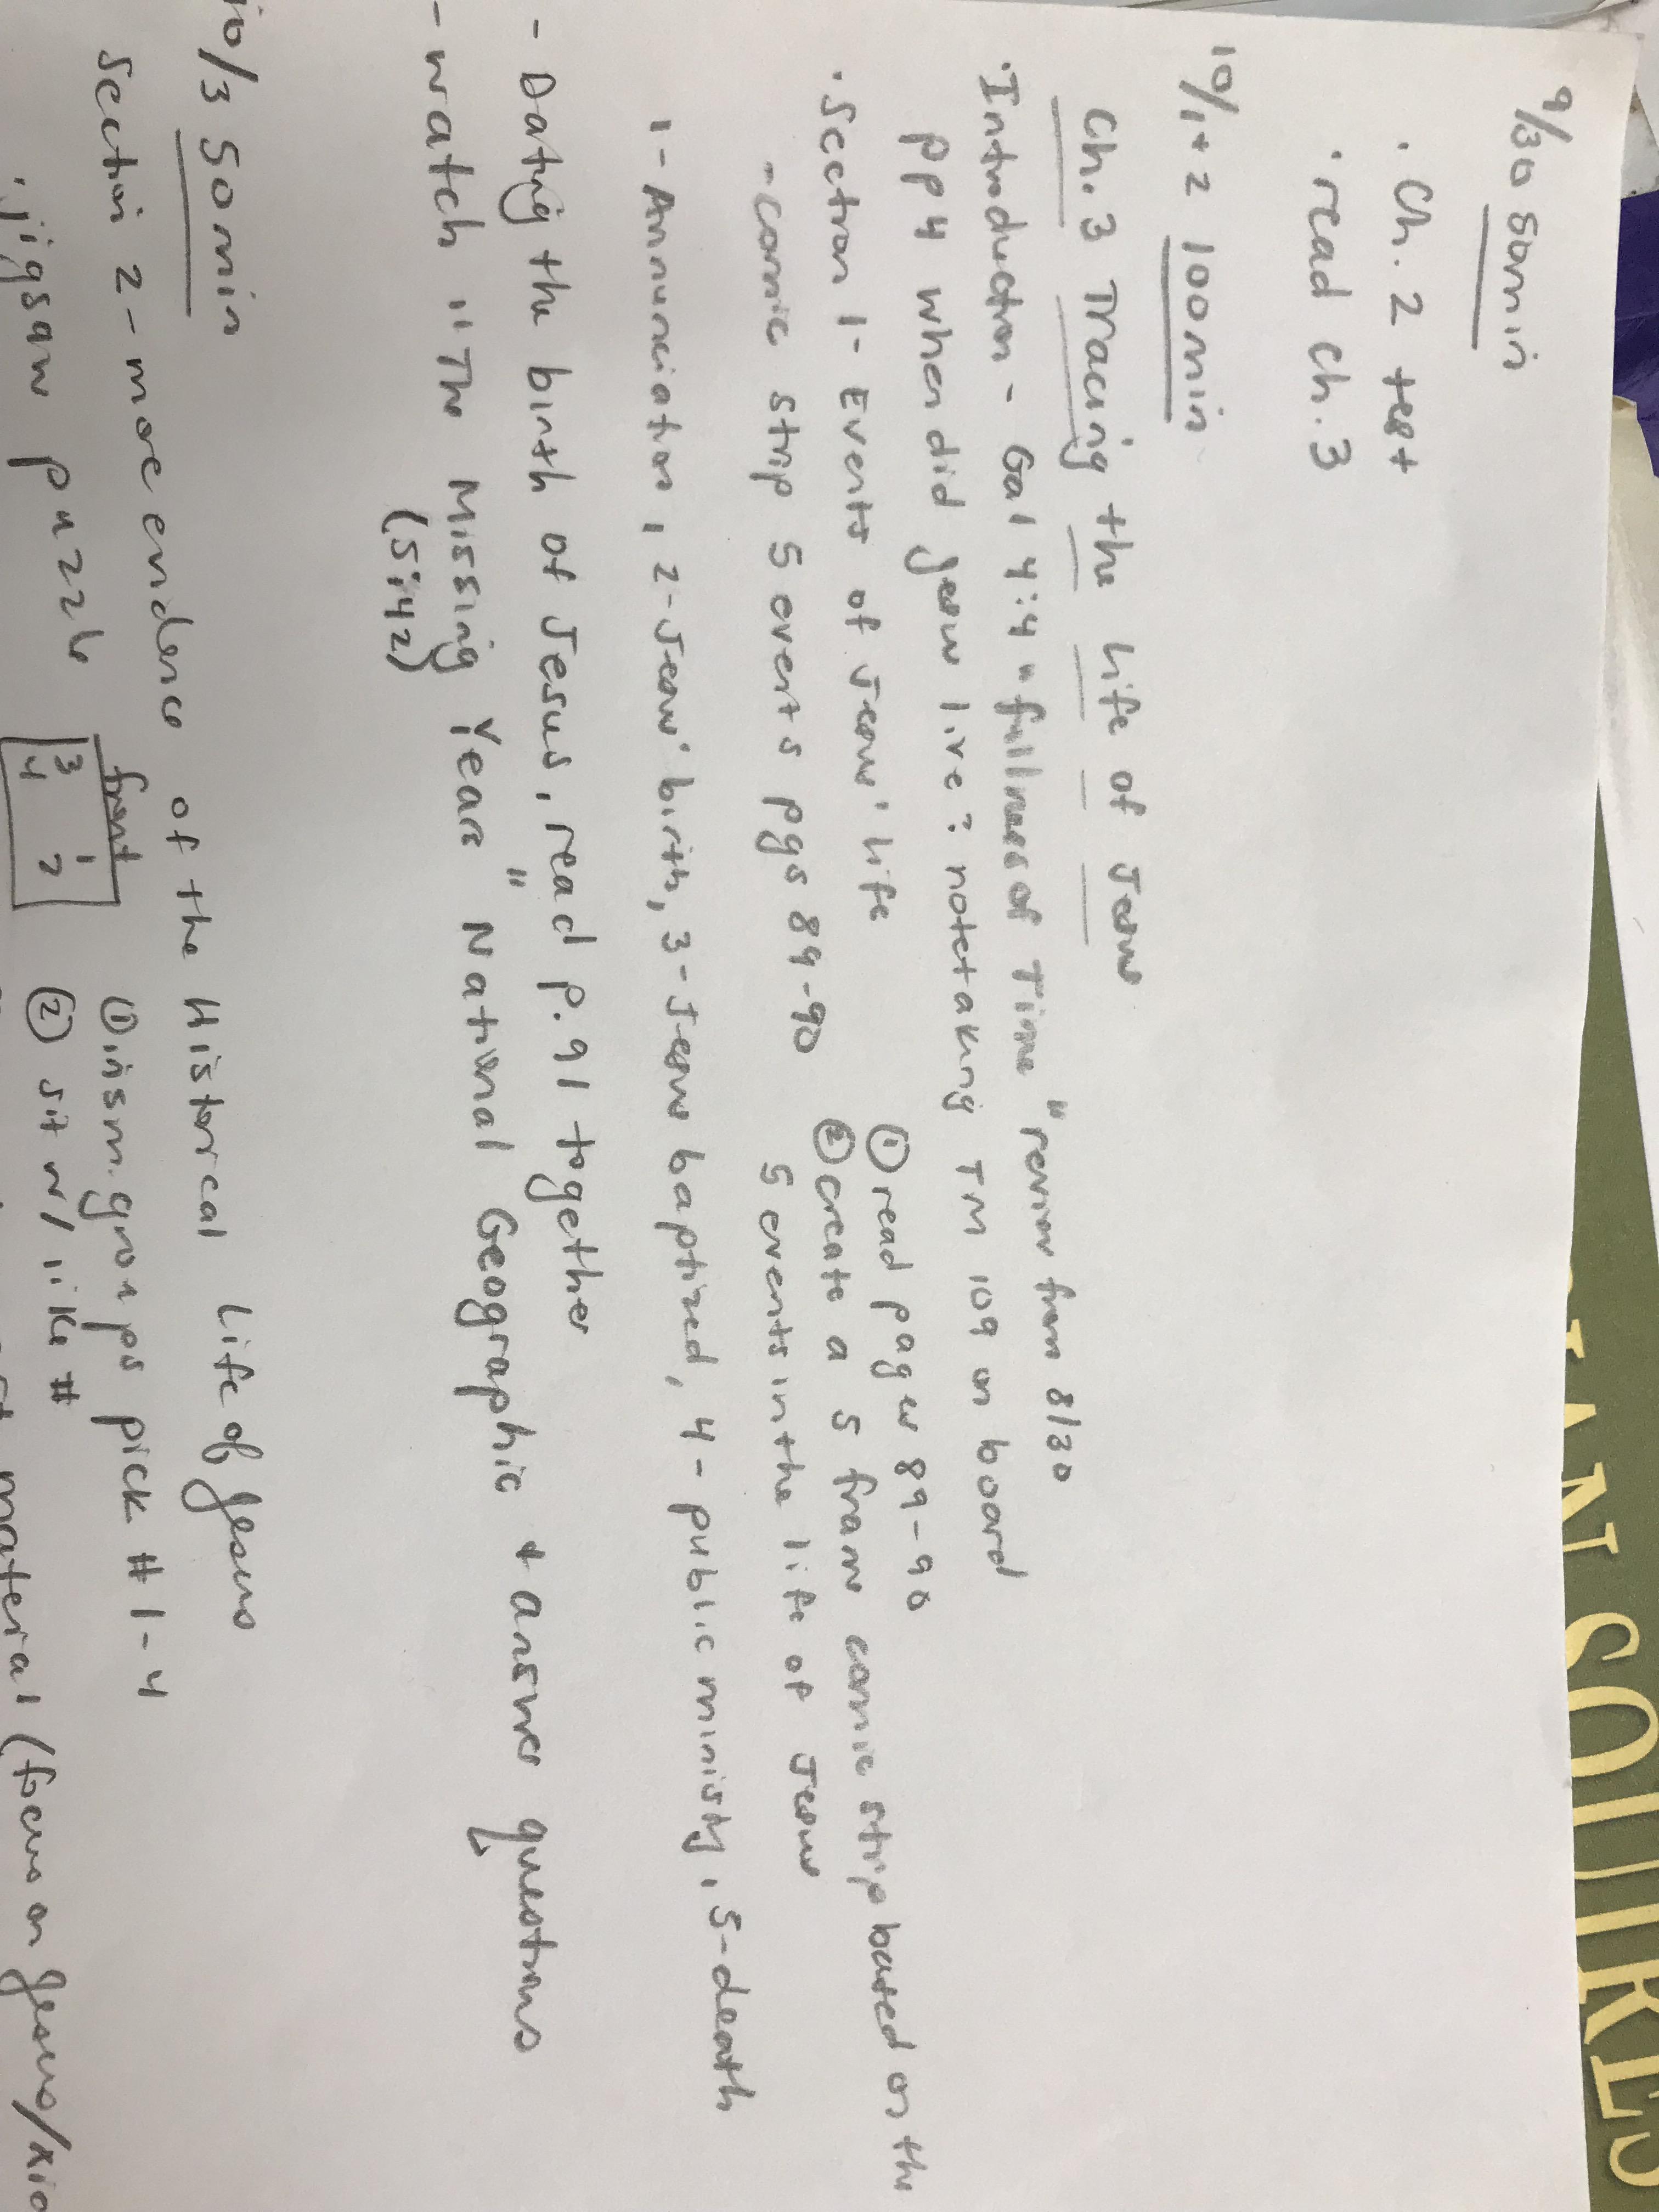 9/30 50min
· Ch. 2 test
· read Ch. 3
10/1+2 100min
Ch. 3 Tracing the life of Jesus
· Introduction - Gal 4:4 "fullness of Time" review from 8/30
pp4 when did Jesus live? notetaking TM 109 on board
· Section 1 - Events of Jesus' life
① read pages 89-90
- comic strip 5 events pgs 89-90
② create a 5 fram comic strip based on the
5 events in the life of Jesus
1 - Annunciation, 2 - Jesus' birth, 3 - Jesus baptized, 4 - public ministry, 5 - death
- Dating the birth of Jesus, read p. 91 together
- watch "The Missing Years" National Geographic + answer questions
(5:42)
10/3 50min
Section 2 - more evidence of the Historical Life of Jesus
· jigsaw puzzle
front
3 1
4 2
① in sm. groups pick # 1-4
② sit w/ like #
material (focus on Jesus/
AN SQUIRES